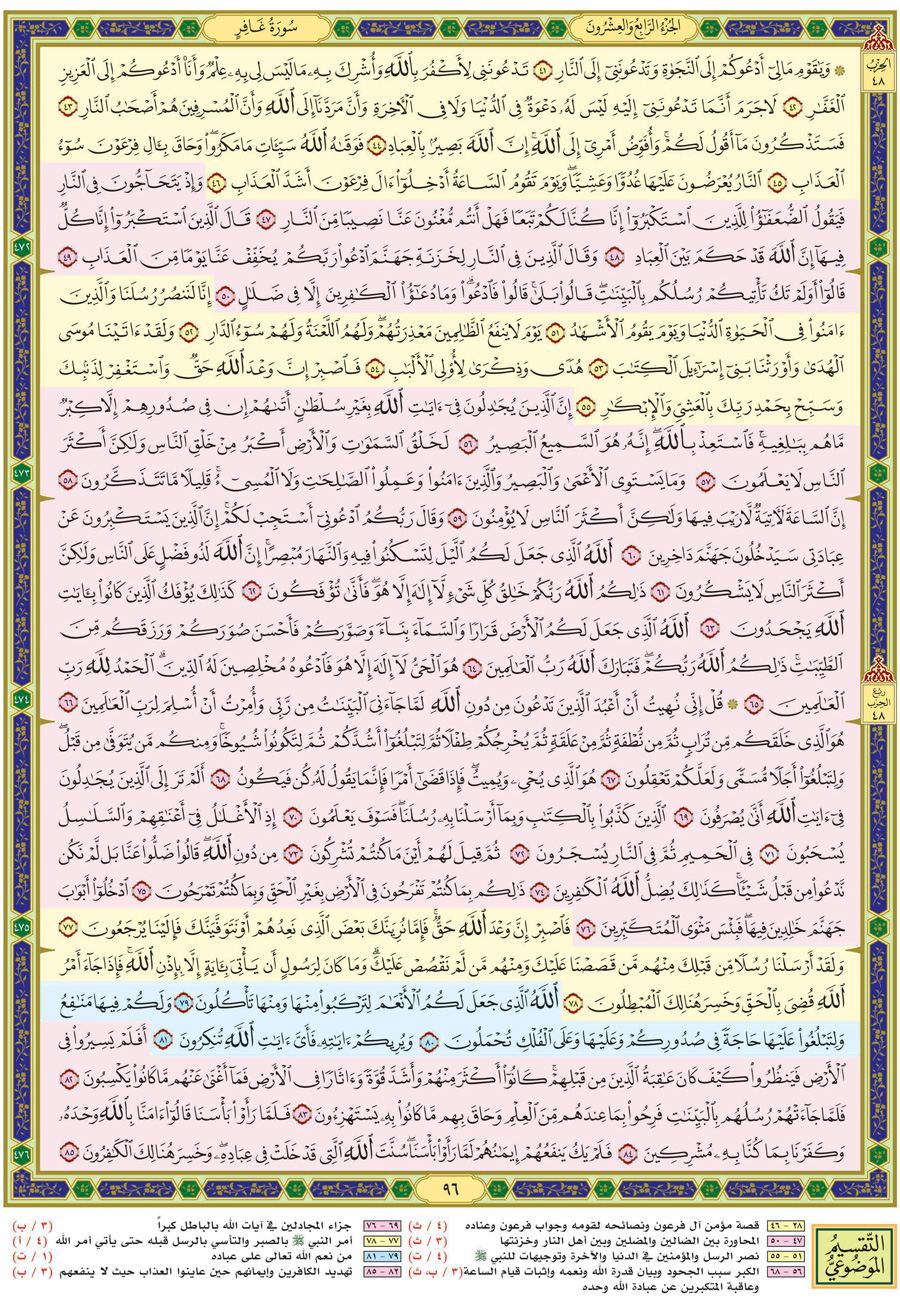 سُورَةُ غَافِرٍ
الجُزْءُ الرَّابِعُ وَالعِشْرُونَ
الحِزْبُ ٤٨
۞ وَيَٰقَوْمِ مَا لِىٓ أَدْعُوكُمْ إِلَى ٱلنَّجَوٰةِ وَتَدْعُونَنِىٓ إِلَى ٱلنَّارِ ٤١ تَدْعُونَنِى لِأَكْفُرَ بِٱللَّهِ وَأُشْرِكَ بِهِۦ مَا لَيْسَ لِى بِهِۦ عِلْمٌ وَأَنَا۠ أَدْعُوكُمْ إِلَى ٱلْعَزِيزِ
ٱلْغَفَّٰرِ ٤٢ لَا جَرَمَ أَنَّمَا تَدْعُونَنِىٓ إِلَيْهِ لَيْسَ لَهُۥ دَعْوَةٌ فِى ٱلدُّنْيَا وَلَا فِى ٱلْءَاخِرَةِ وَأَنَّ مَرَدَّنَآ إِلَى ٱللَّهِ وَأَنَّ ٱلْمُسْرِفِينَ هُمْ أَصْحَٰبُ ٱلنَّارِ ٤٣
فَسَتَذْكُرُونَ مَآ أَقُولُ لَكُمْ ۚ وَأُفَوِّضُ أَمْرِىٓ إِلَى ٱللَّهِ ۚ إِنَّ ٱللَّهَ بَصِيرٌۢ بِٱلْعِبَادِ ٤٤ فَوَقَىٰهُ ٱللَّهُ سَيِّـَٔاتِ مَا مَكَرُوا۟ ۖ وَحَاقَ بِـَٔالِ فِرْعَوْنَ سُوٓءُ
ٱلْعَذَابِ ٤٥ ٱلنَّارُ يُعْرَضُونَ عَلَيْهَا غُدُوًّا وَعَشِيًّا ۖ وَيَوْمَ تَقُومُ ٱلسَّاعَةُ أَدْخِلُوٓا۟ ءَالَ فِرْعَوْنَ أَشَدَّ ٱلْعَذَابِ ٤٦ وَإِذْ يَتَحَآجُّونَ فِى ٱلنَّارِ
فَيَقُولُ ٱلضُّعَفَٰٓؤُا۟ لِلَّذِينَ ٱسْتَكْبَرُوٓا۟ إِنَّا كُنَّا لَكُمْ تَبَعًا فَهَلْ أَنتُم مُّغْنُونَ عَنَّا نَصِيبًا مِّنَ ٱلنَّارِ ٤٧ قَالَ ٱلَّذِينَ ٱسْتَكْبَرُوٓا۟ إِنَّا كُلٌّ
فِيهَآ إِنَّ ٱللَّهَ قَدْ حَكَمَ بَيْنَ ٱلْعِبَادِ ٤٨ وَقَالَ ٱلَّذِينَ فِى ٱلنَّارِ لِخَزَنَةِ جَهَنَّمَ ٱدْعُوا۟ رَبَّكُمْ يُخَفِّفْ عَنَّا يَوْمًا مِّنَ ٱلْعَذَابِ ٤٩
قَالُوٓا۟ أَوَلَمْ تَكُ تَأْتِيكُمْ رُسُلُكُم بِٱلْبَيِّنَٰتِ ۖ قَالُوا۟ بَلَىٰ ۚ قَالُوا۟ فَٱدْعُوا۟ ۗ وَمَا دُعَٰٓؤُا۟ ٱلْكَٰفِرِينَ إِلَّا فِى ضَلَٰلٍ ٥٠ إِنَّا لَنَنصُرُ رُسُلَنَا وَٱلَّذِينَ
ءَامَنُوا۟ فِى ٱلْحَيَوٰةِ ٱلدُّنْيَا وَيَوْمَ يَقُومُ ٱلْأَشْهَٰدُ ٥١ يَوْمَ لَا يَنفَعُ ٱلظَّٰلِمِينَ مَعْذِرَتُهُمْ ۖ وَلَهُمُ ٱللَّعْنَةُ وَلَهُمْ سُوٓءُ ٱلدَّارِ ٥٢ وَلَقَدْ ءَاتَيْنَا مُوسَى
ٱلْهُدَىٰ وَأَوْرَثْنَا بَنِىٓ إِسْرَٰٓءِيلَ ٱلْكِتَٰبَ ٥٣ هُدًى وَذِكْرَىٰ لِأُو۟لِى ٱلْأَلْبَٰبِ ٥٤ فَٱصْبِرْ إِنَّ وَعْدَ ٱللَّهِ حَقٌّ وَٱسْتَغْفِرْ لِذَنۢبِكَ
وَسَبِّحْ بِحَمْدِ رَبِّكَ بِٱلْعَشِىِّ وَٱلْإِبْكَٰرِ ٥٥ إِنَّ ٱلَّذِينَ يُجَٰدِلُونَ فِىٓ ءَايَٰتِ ٱللَّهِ بِغَيْرِ سُلْطَٰنٍ أَتَىٰهُمْ ۙ إِن فِى صُدُورِهِمْ إِلَّا كِبْرٌ
مَّا هُم بِبَٰلِغِيهِ ۚ فَٱسْتَعِذْ بِٱللَّهِ ۖ إِنَّهُۥ هُوَ ٱلسَّمِيعُ ٱلْبَصِيرُ ٥٦ لَخَلْقُ ٱلسَّمَٰوَٰتِ وَٱلْأَرْضِ أَكْبَرُ مِنْ خَلْقِ ٱلنَّاسِ وَلَٰكِنَّ أَكْثَرَ
ٱلنَّاسِ لَا يَعْلَمُونَ ٥٧ وَمَا يَسْتَوِى ٱلْأَعْمَىٰ وَٱلْبَصِيرُ وَٱلَّذِينَ ءَامَنُوا۟ وَعَمِلُوا۟ ٱلصَّٰلِحَٰتِ وَلَا ٱلْمُسِىٓءُ ۚ قَلِيلًا مَّا تَتَذَكَّرُونَ ٥٨
إِنَّ ٱلسَّاعَةَ لَءَاتِيَةٌ لَّا رَيْبَ فِيهَا وَلَٰكِنَّ أَكْثَرَ ٱلنَّاسِ لَا يُؤْمِنُونَ ٥٩ وَقَالَ رَبُّكُمُ ٱدْعُونِىٓ أَسْتَجِبْ لَكُمْ ۚ إِنَّ ٱلَّذِينَ يَسْتَكْبِرُونَ عَنْ
عِبَادَتِى سَيَدْخُلُونَ جَهَنَّمَ دَاخِرِينَ ٦٠ ٱللَّهُ ٱلَّذِى جَعَلَ لَكُمُ ٱلَّيْلَ لِتَسْكُنُوا۟ فِيهِ وَٱلنَّهَارَ مُبْصِرًا ۚ إِنَّ ٱللَّهَ لَذُو فَضْلٍ عَلَى ٱلنَّاسِ وَلَٰكِنَّ
أَكْثَرَ ٱلنَّاسِ لَا يَشْكُرُونَ ٦١ ذَٰلِكُمُ ٱللَّهُ رَبُّكُمْ خَٰلِقُ كُلِّ شَىْءٍ لَّآ إِلَٰهَ إِلَّا هُوَ ۖ فَأَنَّىٰ تُؤْفَكُونَ ٦٢ كَذَٰلِكَ يُؤْفَكُ ٱلَّذِينَ كَانُوا۟ بِـَٔايَٰتِ
ٱللَّهِ يَجْحَدُونَ ٦٣ ٱللَّهُ ٱلَّذِى جَعَلَ لَكُمُ ٱلْأَرْضَ قَرَارًا وَٱلسَّمَآءَ بِنَآءً وَصَوَّرَكُمْ فَأَحْسَنَ صُوَرَكُمْ وَرَزَقَكُم مِّنَ
ٱلطَّيِّبَٰتِ ۚ ذَٰلِكُمُ ٱللَّهُ رَبُّكُمْ ۖ فَتَبَارَكَ ٱللَّهُ رَبُّ ٱلْعَٰلَمِينَ ٦٤ هُوَ ٱلْحَىُّ لَآ إِلَٰهَ إِلَّا هُوَ فَٱدْعُوهُ مُخْلِصِينَ لَهُ ٱلدِّينَ ۗ ٱلْحَمْدُ لِلَّهِ رَبِّ
ٱلْعَٰلَمِينَ ٦٥ ۞ قُلْ إِنِّى نُهِيتُ أَنْ أَعْبُدَ ٱلَّذِينَ تَدْعُونَ مِن دُونِ ٱللَّهِ لَمَّا جَآءَنِىَ ٱلْبَيِّنَٰتُ مِن رَّبِّى وَأُمِرْتُ أَنْ أُسْلِمَ لِرَبِّ ٱلْعَٰلَمِينَ ٦٦
هُوَ ٱلَّذِى خَلَقَكُم مِّن تُرَابٍ ثُمَّ مِن نُّطْفَةٍ ثُمَّ مِنْ عَلَقَةٍ ثُمَّ يُخْرِجُكُمْ طِفْلًا ثُمَّ لِتَبْلُغُوٓا۟ أَشُدَّكُمْ ثُمَّ لِتَكُونُوا۟ شُيُوخًا ۚ وَمِنكُم مَّن يُتَوَفَّىٰ مِن قَبْلُ ۖ
وَلِتَبْلُغُوٓا۟ أَجَلًا مُّسَمًّى وَلَعَلَّكُمْ تَعْقِلُونَ ٦٧ هُوَ ٱلَّذِى يُحْىِۦ وَيُمِيتُ ۖ فَإِذَا قَضَىٰٓ أَمْرًا فَإِنَّمَا يَقُولُ لَهُۥ كُن فَيَكُونُ ٦٨ أَلَمْ تَرَ إِلَى ٱلَّذِينَ يُجَٰدِلُونَ
فِىٓ ءَايَٰتِ ٱللَّهِ أَنَّىٰ يُصْرَفُونَ ٦٩ ٱلَّذِينَ كَذَّبُوا۟ بِٱلْكِتَٰبِ وَبِمَآ أَرْسَلْنَا بِهِۦ رُسُلَنَا ۖ فَسَوْفَ يَعْلَمُونَ ٧٠ إِذِ ٱلْأَغْلَٰلُ فِىٓ أَعْنَٰقِهِمْ وَٱلسَّلَٰسِلُ
يُسْحَبُونَ ٧١ فِى ٱلْحَمِيمِ ثُمَّ فِى ٱلنَّارِ يُسْجَرُونَ ٧٢ ثُمَّ قِيلَ لَهُمْ أَيْنَ مَا كُنتُمْ تُشْرِكُونَ ٧٣ مِن دُونِ ٱللَّهِ ۖ قَالُوا۟ ضَلُّوا۟ عَنَّا بَل لَّمْ نَكُن
نَّدْعُوا۟ مِن قَبْلُ شَيْـًٔا ۚ كَذَٰلِكَ يُضِلُّ ٱللَّهُ ٱلْكَٰفِرِينَ ٧٤ ذَٰلِكُم بِمَا كُنتُمْ تَفْرَحُونَ فِى ٱلْأَرْضِ بِغَيْرِ ٱلْحَقِّ وَبِمَا كُنتُمْ تَمْرَحُونَ ٧٥ ٱدْخُلُوٓا۟ أَبْوَٰبَ
جَهَنَّمَ خَٰلِدِينَ فِيهَا ۖ فَبِئْسَ مَثْوَى ٱلْمُتَكَبِّرِينَ ٧٦ فَٱصْبِرْ إِنَّ وَعْدَ ٱللَّهِ حَقٌّ ۚ فَإِمَّا نُرِيَنَّكَ بَعْضَ ٱلَّذِى نَعِدُهُمْ أَوْ نَتَوَفَّيَنَّكَ فَإِلَيْنَا يُرْجَعُونَ ٧٧
وَلَقَدْ أَرْسَلْنَا رُسُلًا مِّن قَبْلِكَ مِنْهُم مَّن قَصَصْنَا عَلَيْكَ وَمِنْهُم مَّن لَّمْ نَقْصُصْ عَلَيْكَ ۗ وَمَا كَانَ لِرَسُولٍ أَن يَأْتِىَ بِـَٔايَةٍ إِلَّا بِإِذْنِ ٱللَّهِ ۚ فَإِذَا جَآءَ أَمْرُ
ٱللَّهِ قُضِىَ بِٱلْحَقِّ وَخَسِرَ هُنَالِكَ ٱلْمُبْطِلُونَ ٧٨ ٱللَّهُ ٱلَّذِى جَعَلَ لَكُمُ ٱلْأَنْعَٰمَ لِتَرْكَبُوا۟ مِنْهَا وَمِنْهَا تَأْكُلُونَ ٧٩ وَلَكُمْ فِيهَا مَنَٰفِعُ
وَلِتَبْلُغُوا۟ عَلَيْهَا حَاجَةً فِى صُدُورِكُمْ وَعَلَيْهَا وَعَلَى ٱلْفُلْكِ تُحْمَلُونَ ٨٠ وَيُرِيكُمْ ءَايَٰتِهِۦ فَأَىَّ ءَايَٰتِ ٱللَّهِ تُنكِرُونَ ٨١ أَفَلَمْ يَسِيرُوا۟ فِى
ٱلْأَرْضِ فَيَنظُرُوا۟ كَيْفَ كَانَ عَٰقِبَةُ ٱلَّذِينَ مِن قَبْلِهِمْ ۚ كَانُوٓا۟ أَكْثَرَ مِنْهُمْ وَأَشَدَّ قُوَّةً وَءَاثَارًا فِى ٱلْأَرْضِ فَمَآ أَغْنَىٰ عَنْهُم مَّا كَانُوا۟ يَكْسِبُونَ ٨٢
فَلَمَّا جَآءَتْهُمْ رُسُلُهُم بِٱلْبَيِّنَٰتِ فَرِحُوا۟ بِمَا عِندَهُم مِّنَ ٱلْعِلْمِ وَحَاقَ بِهِم مَّا كَانُوا۟ بِهِۦ يَسْتَهْزِءُونَ ٨٣ فَلَمَّا رَأَوْا۟ بَأْسَنَا قَالُوٓا۟ ءَامَنَّا بِٱللَّهِ وَحْدَهُۥ
وَكَفَرْنَا بِمَا كُنَّا بِهِۦ مُشْرِكِينَ ٨٤ فَلَمْ يَكُ يَنفَعُهُمْ إِيمَٰنُهُمْ لَمَّا رَأَوْا۟ بَأْسَنَا ۖ سُنَّتَ ٱللَّهِ ٱلَّتِى قَدْ خَلَتْ فِى عِبَادِهِۦ ۖ وَخَسِرَ هُنَالِكَ ٱلْكَٰفِرُونَ ٨٥
ربع الحزب ٤٨
٤٧٢
٤٧٣
٤٧٤
٤٧٥
٤٧٦
٩٦
التَّقسِيمُ
المَوْضُوعِيُّ
٢٨ - ٤٦ قصة مؤمن آل فرعون ونصائحه لقومه وجواب فرعون وعناده (٤ / ث)
٤٧ - ٥٠ المحاورة بين الضالين والمضلين وبين أهل النار وخزنتها (٣ / ث)
٥١ - ٥٥ نصر الرسل والمؤمنين في الدنيا والآخرة وتوجيهات للنبي ﷺ (٤ / ت)
٥٦ - ٦٨ الكبر سبب الجحود وبيان قدرة الله ونعمه وإثبات قيام الساعة (٣ / ب، ث)
وعاقبة المتكبرين عن عبادة الله وحده
٦٩ - ٧٦ جزاء المجادلين في آيات الله بالباطل كبراً (٣ / ب)
٧٧ - ٧٨ أمر النبي ﷺ بالصبر والتأسي بالرسل قبله حتى يأتي أمر الله (٤ / أ)
٧٩ - ٨١ من نعم الله تعالى على عباده (١ / ت)
٨٢ - ٨٥ تهديد الكافرين وإيمانهم حين عاينوا العذاب حيث لا ينفعهم (٣ / ب)